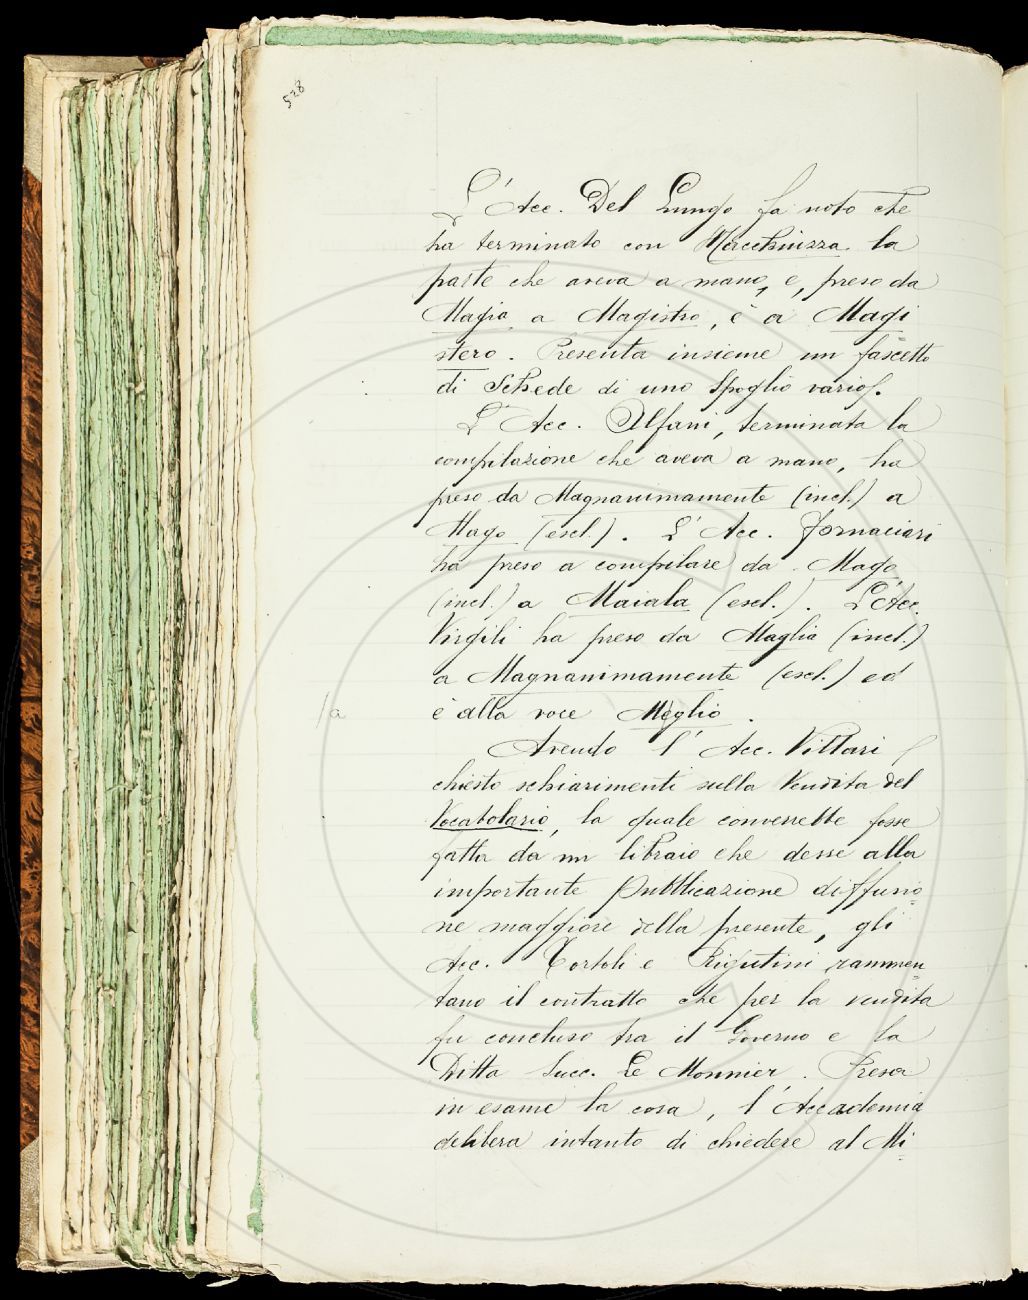 528
L'Acc. Del Lungo fa noto che
ha terminato con Macchiuzza la
parte che aveva a mano, e, preso da
Magìa a Magistro, è a Magi
stero. Presenta insieme un fascetto
di Schede di uno Spoglio vario.
L'Acc. Alfani, terminata la
compilazione che aveva a mano, ha
preso da Magnanimamente (incl.) a
Mago (escl.). L'Acc. Fornaciari
ha preso a compilare da Mago
(incl.) a Maiala (escl.). L'Acc.
Virgili ha preso da Maglia (incl.)
a Magnanimamente (escl.) ed
è alla voce Meglio.
/a
Avendo l'Acc. Villari
chiesto schiarimenti sulla vendita del
Vocabolario, la quale converrebbe fosse
fatta da un libraio che desse alla
importante pubblicazione diffusio=
ne maggiore della presente, gli
Acc. Tortoli e Rigutini rammen=
tano il contratto che per la vendita
fu concluso tra il Governo e la
Ditta Succ. Le Monnier. Presa
in esame la cosa, l'Accademia
delibera intanto di chiedere al Mi=